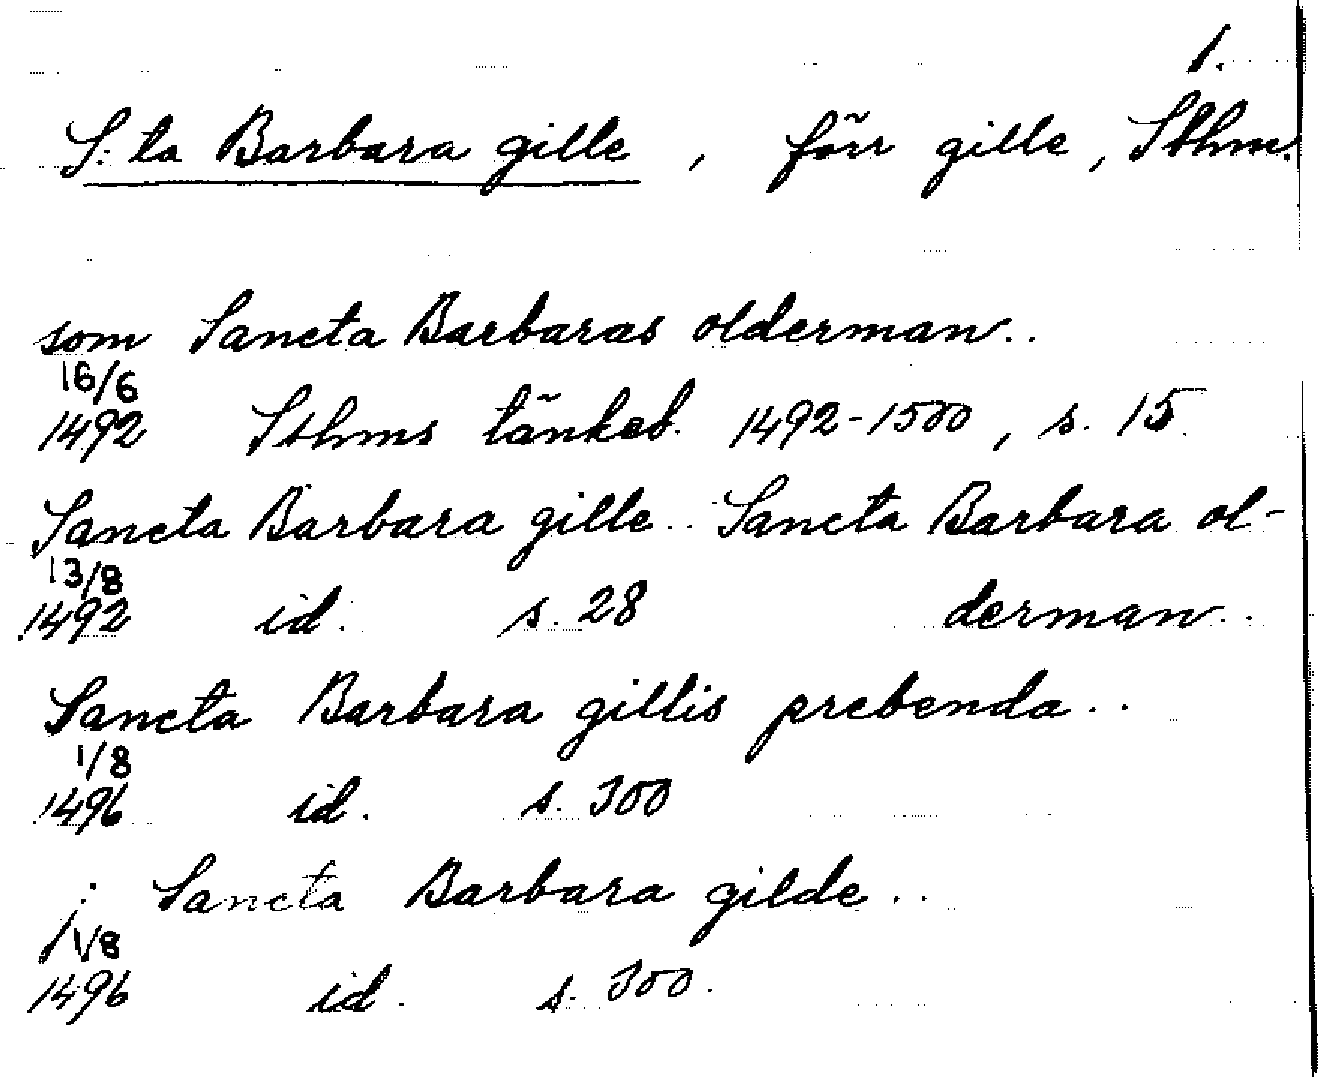 1.
S:ta Barbara gille, förr gille, Sthm.
som Sancta Barbaras olderman..
16/6
1492 Sthms tänkeb. 1492-1500, s. 15
Sancta Barbara gille.. Sancta Barbara ol-
13/8
1492 id. s. 28 derman..
Sancta Barbara gillis prebenda..
1/8
1496 id. s. 300
j Sancta Barbara gilde..
1/8
1496 id. s. 300.